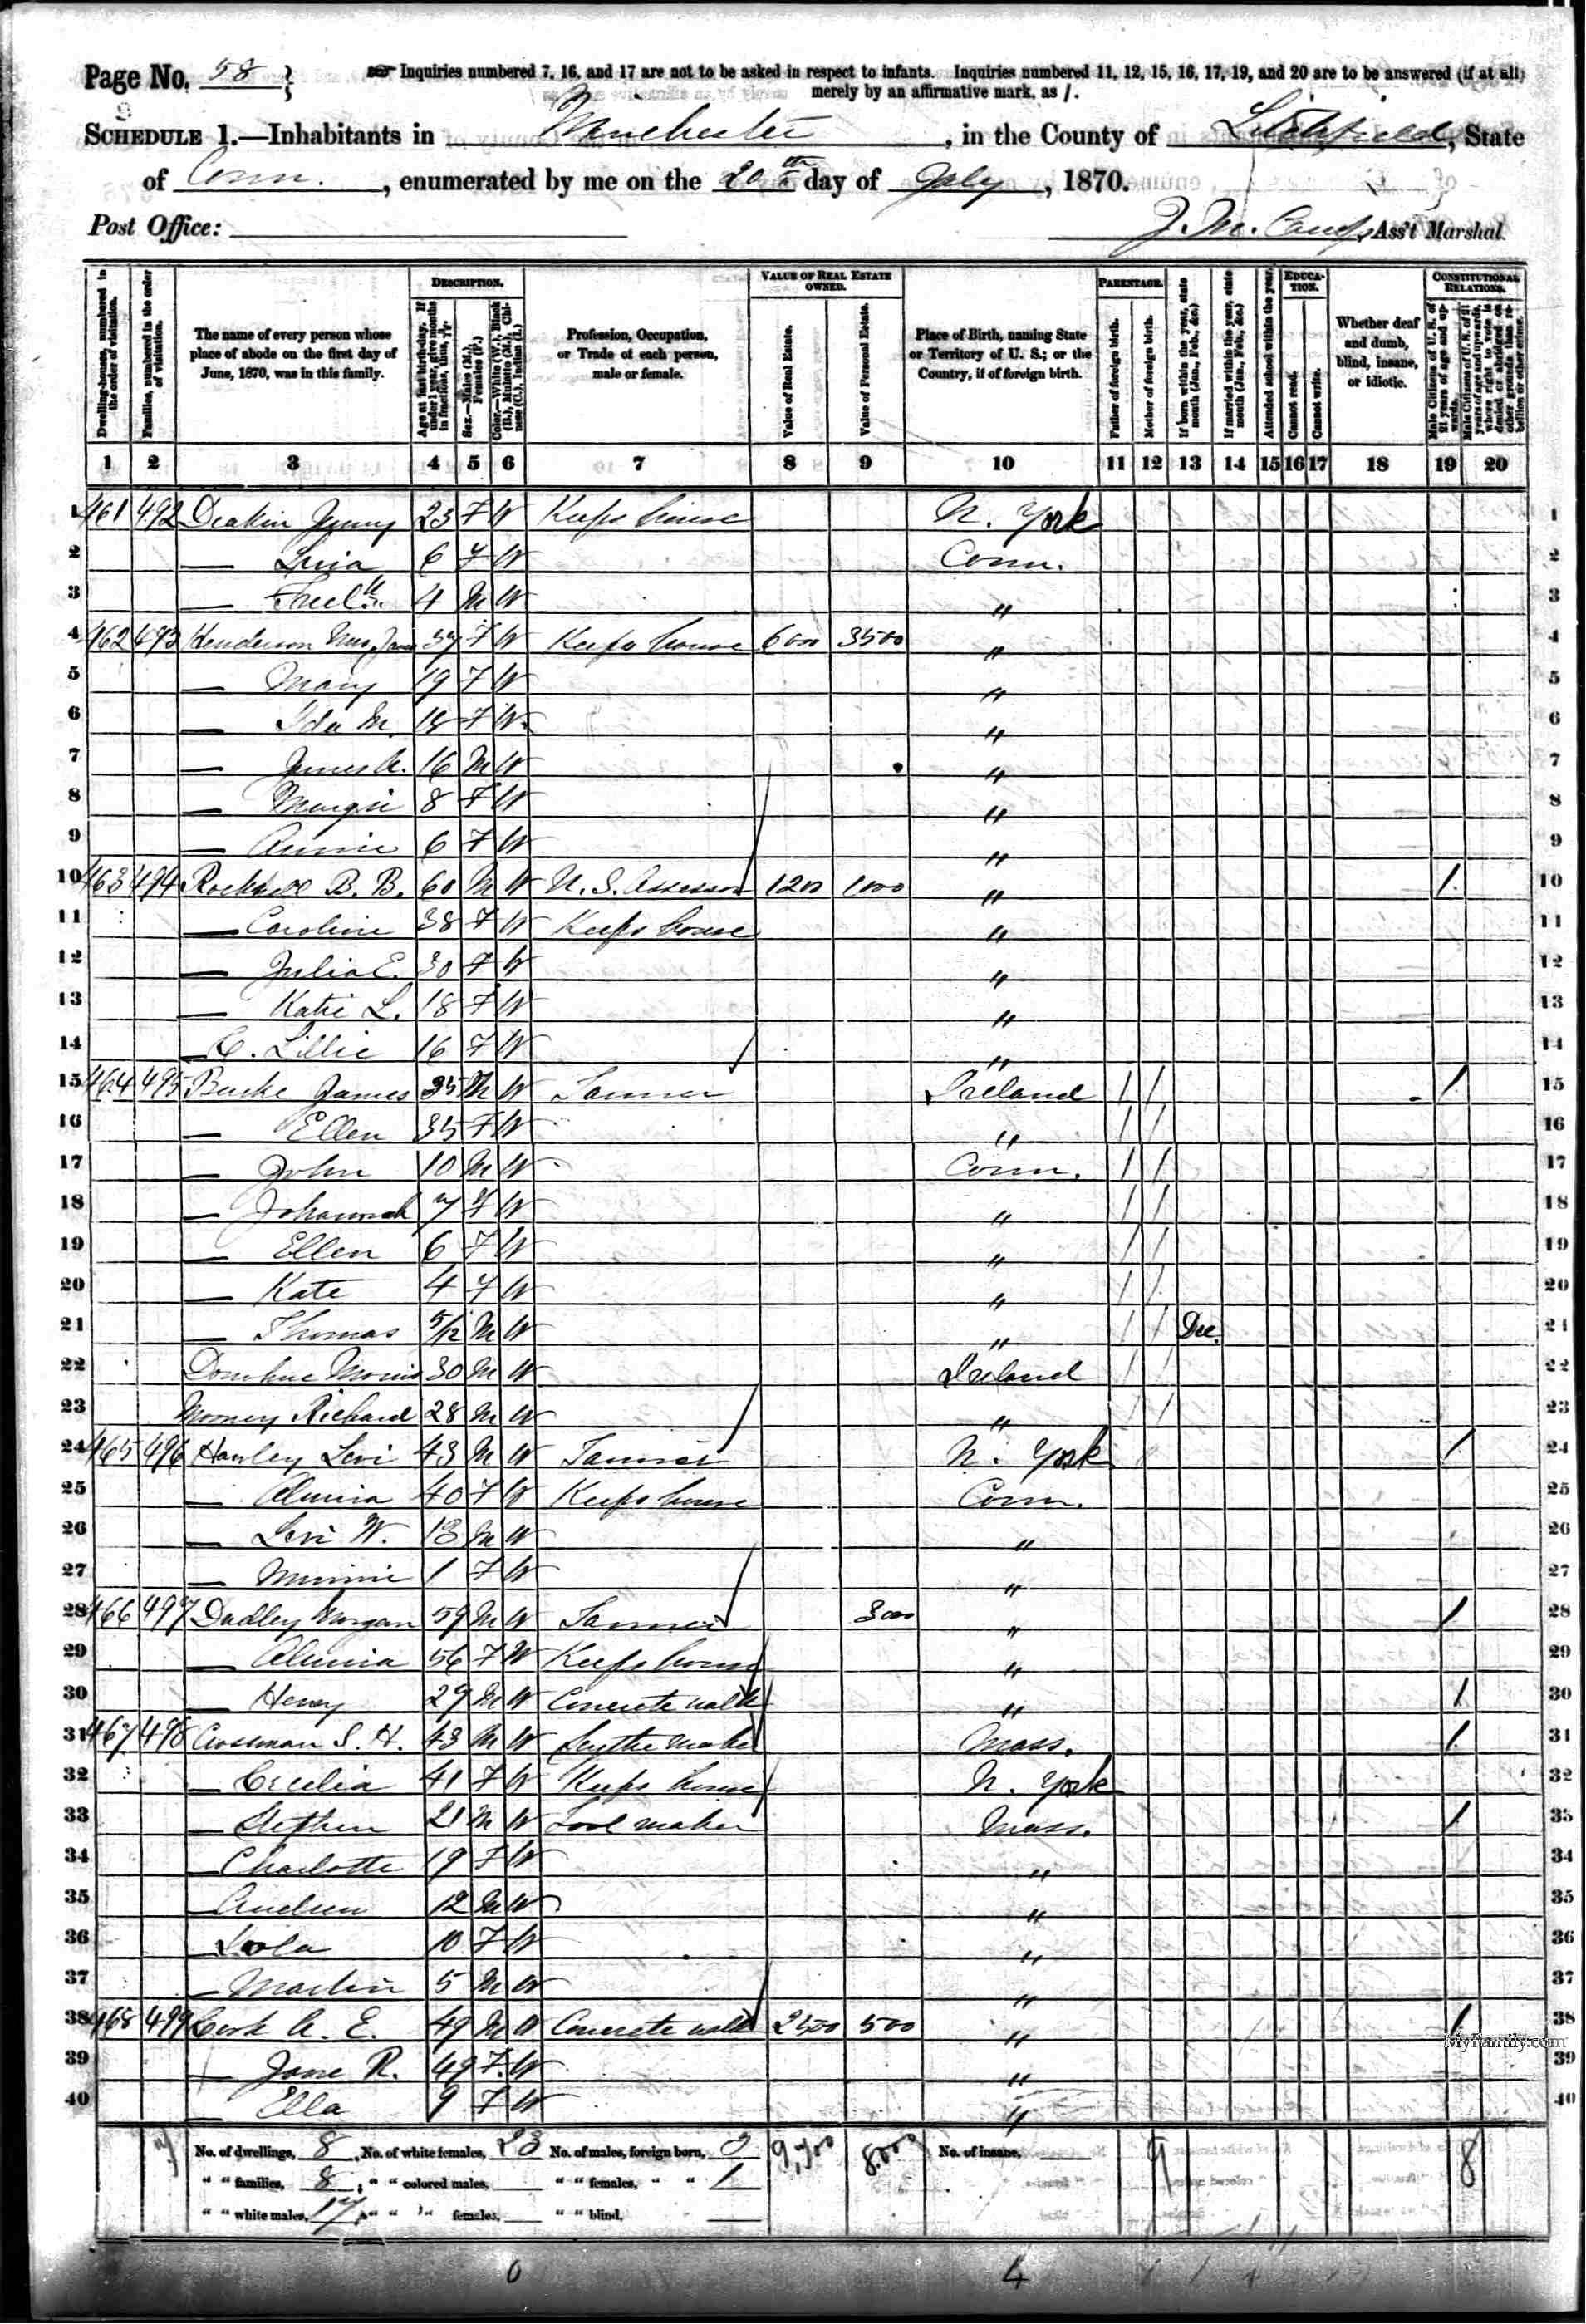 Page No. 58
Inquiries numbered 7, 16, and 17 are not to be asked in respect to infants. Inquiries numbered 11, 12, 15, 16, 17, 19, and 20 are to be answered (if at all)
merely by an affirmative mark, as /.
SCHEDULE 1.—Inhabitants in Winchester, in the County of Litchfield, State
of Conn., enumerated by me on the 20th day of July, 1870.
Post Office:
J. M. Camp, Ass't Marshal.
Dwelling-houses, numbered in the order of visitation.
Families, numbered in the order of visitation.
The name of every person whose place of abode on the first day of June, 1870, was in this family.
DESCRIPTION.
Age at last birthday. If under 1 year, give months in fractions, thus, 3/12.
Sex.—Males (M.), Females (F.)
Color.—White (W.), Black (B.), Mulatto (M.), Chinese (C.), Indian (I.)
Profession, Occupation, or Trade of each person, male or female.
VALUE OF REAL ESTATE OWNED.
Value of Real Estate.
Value of Personal Estate.
Place of Birth, naming State or Territory of U. S.; or the Country, if of foreign birth.
PARENTAGE.
Father of foreign birth.
Mother of foreign birth.
If born within the year, state month (Jan., Feb., &c.)
If married within the year, state month (Jan., Feb., &c.)
Attended school within the year.
EDUCATION.
Cannot read.
Cannot write.
Whether deaf and dumb, blind, insane, or idiotic.
CONSTITUTIONAL RELATIONS.
Male Citizens of U. S. of 21 years of age and upwards.
Male Citizens of U. S. of 21 years of age and upwards, whose right to vote is denied or abridged on other grounds than rebellion or other crime.
1 2 3 4 5 6 7 8 9 10 11 12 13 14 15 16 17 18 19 20
1 461 492 Deakin Jenny 23 F W Keeps house N. York 1
2 — 6 F W Conn. 2
3 — Fredk 4 M W " 3
4 462 493 Henderson Mrs. Jane 37 F W Keeps house 6000 3500 " 4
5 — Mary 19 F W " 5
6 — Ida M. 18 F W " 6
7 — James A. 16 M W " 7
8 — Margie 8 F W " 8
9 — Annie 6 F W " 9
10 463 494 Rockwell B. B. 60 M W U. S. Assessor 1200 1000 " / 10
11 — Caroline 38 F W Keeps house " 11
12 — Julia E. 30 F W " 12
13 — Katie L. 18 F W " 13
14 — C. Lillie 16 F W " 14
15 464 495 Burke James 35 M W Tanner Ireland / / / 15
16 — Ellen 35 F W " / / 16
17 — John 10 M W Conn. / / 17
18 — Johannah 7 F W " / / 18
19 — Ellen 6 F W " / / 19
20 — Kate 4 F W " / / 20
21 — Thomas 5/12 M W " / / Dec. 21
22 Donohue Morris 30 M W Ireland / / 22
23 Mooney Richard 28 M W " / / 23
24 465 496 Hawley Levi 43 M W Tanner N. York / 24
25 — Almira 40 F W Keeps house Conn. 25
26 — Levi W. 13 M W " 26
27 — Minnie 1 F W " 27
28 466 497 Dudley Morgan 59 M W Tanner 3000 " / 28
29 — Almira 56 F W Keeps house " 29
30 — Henry 29 M W Concrete walk " / 30
31 467 498 Crossman S. H. 43 M W Scythe maker Mass. / 31
32 — Cecelia 41 F W Keeps house N. York 32
33 — Stephen 21 M W Tool maker Mass. / 33
34 — Charlotte 19 F W " 34
35 — Andrew 12 M W " 35
36 — Lola 10 F W " 36
37 — Martin 5 M W " 37
38 468 499 Cook A. E. 49 M W Concrete walk 2500 500 " / 38
39 — Jane R. 49 F W " 39
40 — Ella 9 F W " 40
MyFamily.com
No. of dwellings, 8, No. of white females, 23 No. of males, foreign born, 3 9,700 8,000 No. of insane, 9 8
" " families, 8, " " colored males, " " females, " " 1
" " white males, 17, " " " females, " " blind,
0 4